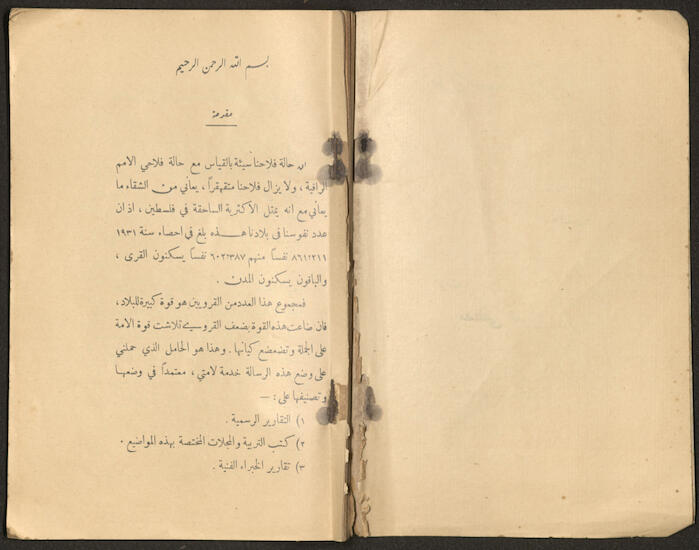 بسم الله الرحمن الرحيم
مقدمة
ان حالة فلاحنا سيئة بالقياس مع حالة فلاحي الامم
الراقية ، ولا يزال فلاحنا متقهقراً ، يعاني من الشقاء ما
يعاني مع انه يمثل الأكثرية الساحقة في فلسطين ، اذ ان
عدد نفوسنا في بلادنا هذه بلغ في احصاء سنة ١٩٣١
٨٦١٢١١ نفساً منهم ٦٠٢٣٨٧ نفساً يسكنون القرى ،
والباقون يسكنون المدن .
فمجموع هذا العدد من القرويين هو قوة كبيرة للبلاد،
فان ضاعت هذه القوة بضعف القرويين تلاشت قوة الامة
على الجملة وتضعضع كيانها . وهذا هو الحامل الذي حملني
على وضع هذه الرسالة خدمة لامتي ، معتمداً في وضعها
وتصنيفها على : —
١) التقارير الرسمية .
٢) كتب التربية والمجلات المختصة بهذه المواضيع .
٣) تقارير الخبراء الفنية .